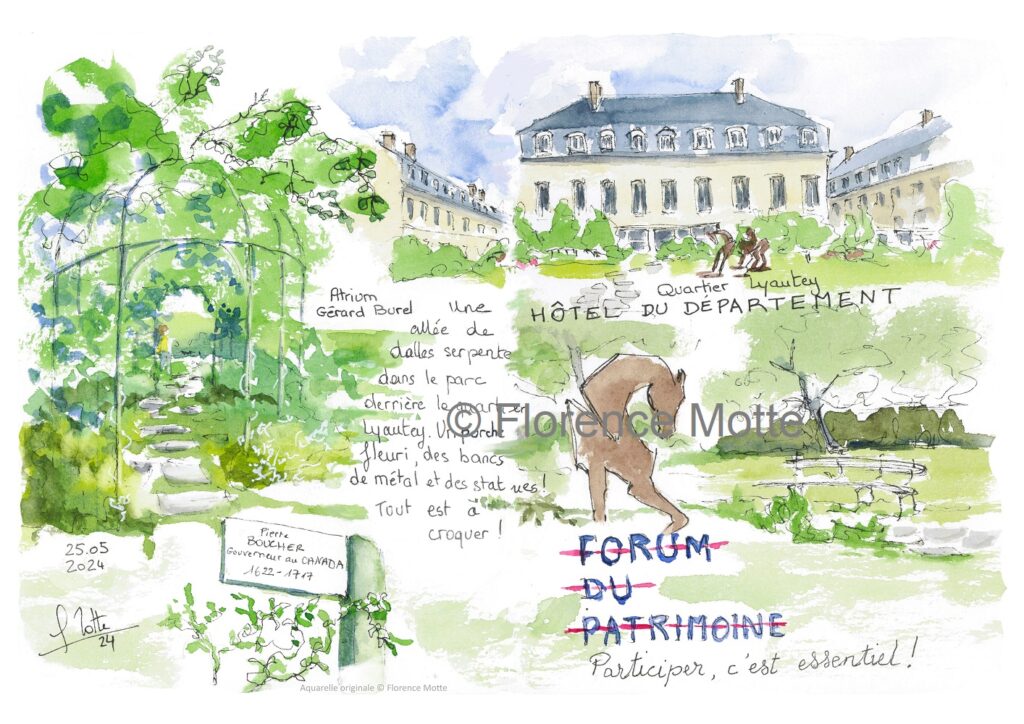 Atrium
Gérard Burel
Une
allée de
dalles serpente
dans le parc
derrière le quartier
Lyautey. Un porche
fleuri, des bancs
de métal et des statues !
Tout est à
croquer !
Quartier Lyautey
HÔTEL DU DÉPARTEMENT
© Florence Motte
Pierre
BOUCHER
Gouverneur au CANADA
1622-1717
25.05
2024
f Motte
24
FORUM
DU
PATRIMOINE
Participer, c'est essentiel !
Aquarelle originale © Florence Motte